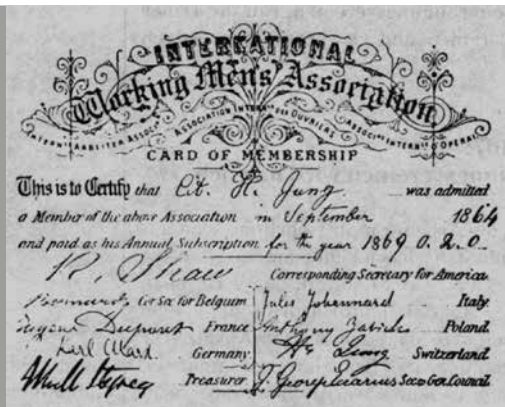 INTERNATIONAL
Working Men's Association
INTERN. ARBEITER ASSOC. ASSOCIATION INTERN. DES OUVRIERS ASSOC. INTERN. D'OPERAI
CARD OF MEMBERSHIP
This is to Certify that Cit. H. Jung was admitted
a Member of the above Association in September 1864
and paid as his Annual Subscription for the year 1869 0.2.0.
R. Shaw Corresponding Secretary for America
Cor Sec for Belgium Jules Johannard Italy
Eugene Dupont France Anthony Zabicki Poland
Karl Marx Germany H. Jung Switzerland
Treasurer J. George Eccarius Sec. Gen. Council